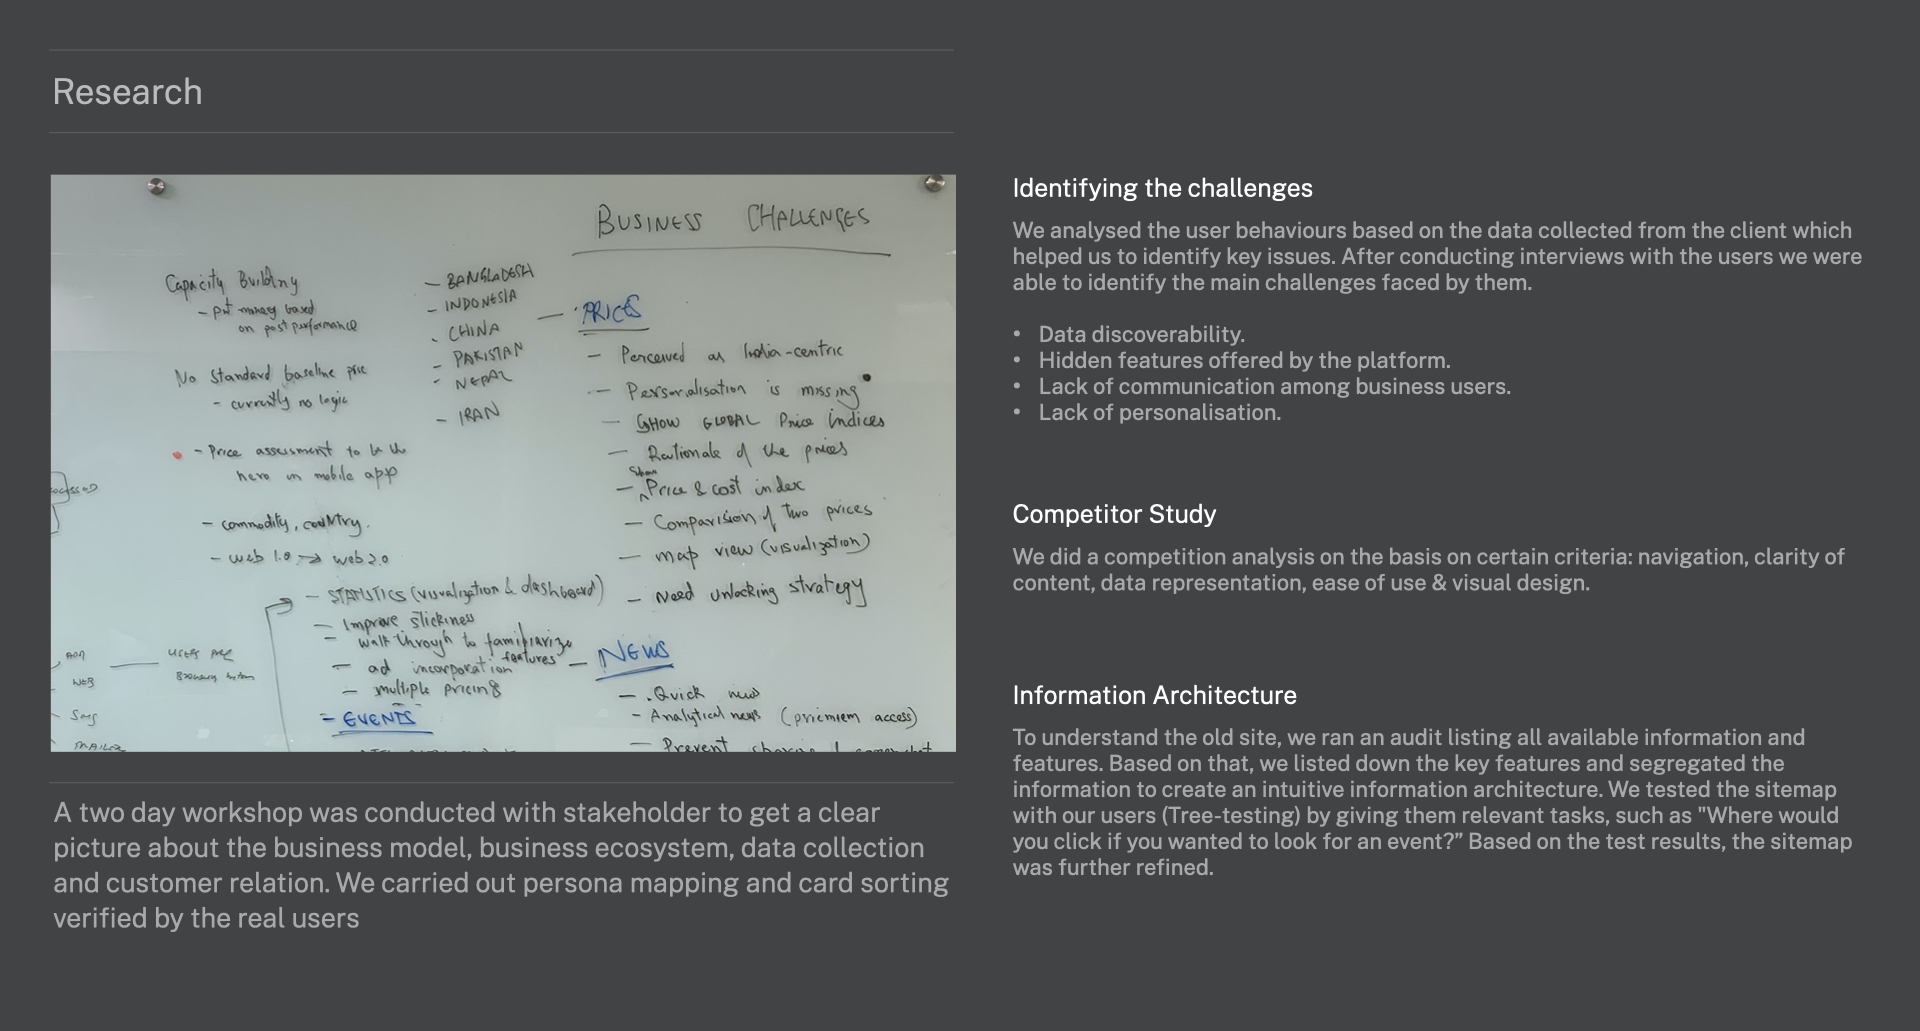 Research
BUSINESS CHALLENGES
Capacity Building
on past performance
- BANGLADESH
- INDONESIA
- CHINA
- PAKISTAN
- NEPAL
- IRAN
No Standard baseline price
- currently no logic
- Price assessment to be the
hero in mobile app
- commodity, country.
- web 1.0 → web 2.0
— PRICES
- Perceived as India-centric
- Personalisation is missing
- SHOW GLOBAL Price indices
- Rationale of the prices
Show
- Price & cost index
- Comparision of two prices
- map view (visualization)
- Need unlocking strategy
- STATISTICS (visualization & dashboard)
- Improve stickiness
- walk through to familiarize
features
- ad incorporation
- multiple pricing
- EVENTS
- NEWS
- Quick news
- Analytical news (premiem access)
- Prevent
WEB
A two day workshop was conducted with stakeholder to get a clear
picture about the business model, business ecosystem, data collection
and customer relation. We carried out persona mapping and card sorting
verified by the real users
Identifying the challenges
We analysed the user behaviours based on the data collected from the client which
helped us to identify key issues. After conducting interviews with the users we were
able to identify the main challenges faced by them.
• Data discoverability.
• Hidden features offered by the platform.
• Lack of communication among business users.
• Lack of personalisation.
Competitor Study
We did a competition analysis on the basis on certain criteria: navigation, clarity of
content, data representation, ease of use & visual design.
Information Architecture
To understand the old site, we ran an audit listing all available information and
features. Based on that, we listed down the key features and segregated the
information to create an intuitive information architecture. We tested the sitemap
with our users (Tree-testing) by giving them relevant tasks, such as "Where would
you click if you wanted to look for an event?” Based on the test results, the sitemap
was further refined.